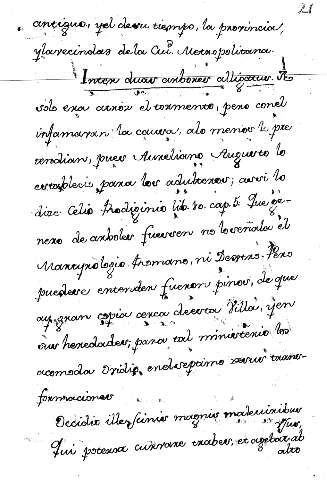 21
antiguo, y el de su tiempo, la provincia,
y la vecindad de la Ciu.d Metropolitana.
Inter duas arbores alligatur. No
solo era atroz el tormento, pero con el
infamaran la causa, a lo menos lo pre
tendian, pues Aureliano Augusto lo
establecio para los adulteros; assi lo
dize Celio Rodiginio lib. 10. cap. 5. Que ge-
nero de arboles fuessen no lo señala el
Martyrologio Romano, ni Dextro. Pero
puedese entender fueron pinos, de que
ay gran copia cerca de esta Villa, y en
sus heredades; para tal ministerio los
acomoda Ovidio en el septimo de sus trans-
formaciones
Occidit ille, Scinis magnis male viribus
usus,
Qui poterat curvare trabes, et agebat ab
alto